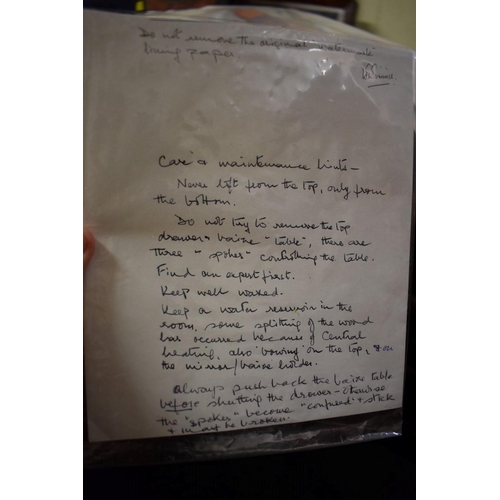 Do not remove the original
lining paper
Care & maintenance hints –
Never lift from the top, only from
the bottom.
Do not try to remove the top
drawer + baize "table", there are
three "spokes" controlling the table.
Find an expert first.
Keep well waxed.
Keep a water reservoir in the
room, some splitting of the wood
has occurred because of Central
heating, also 'bowing' on the top, & on
the mirror/baize holder.
Always push back the baize table
before shutting the drawer – otherwise
the "spokes" become "confused" & stick
& may be broken.